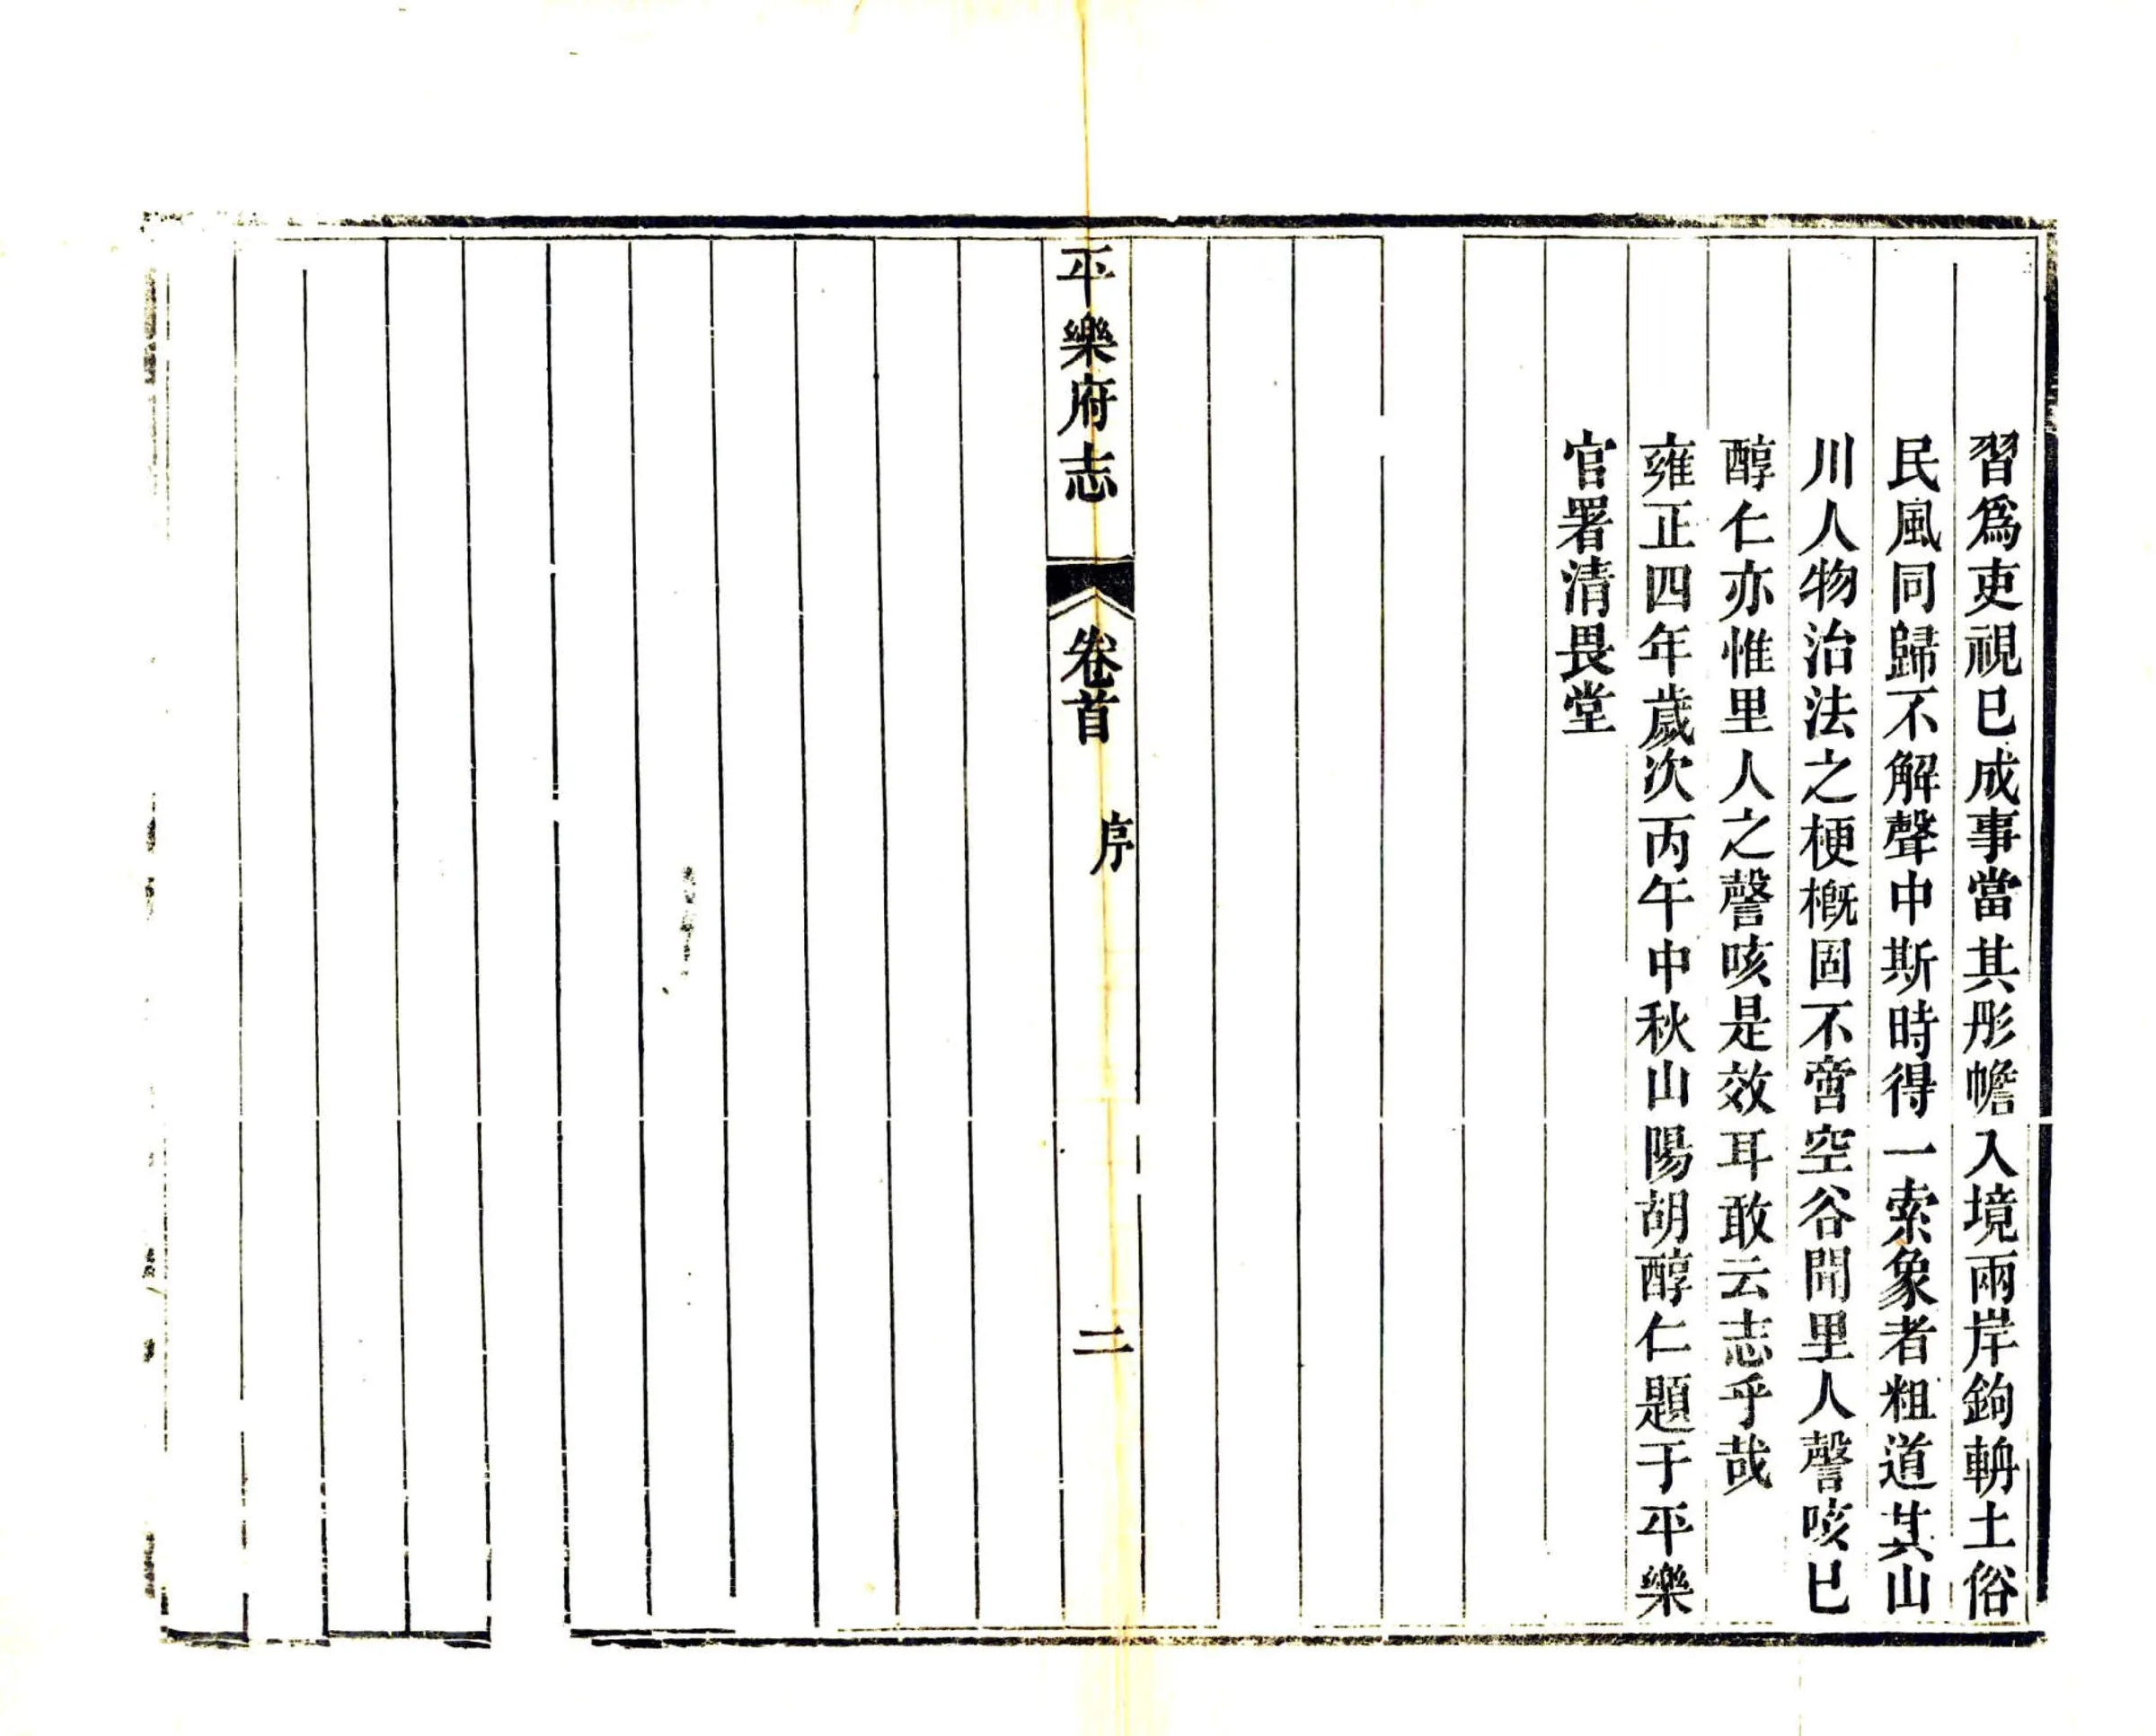 習爲吏視巳成事當其彤幨入境兩岸鉤輈土俗
民風同歸不解聲中斯時得一索象者粗道其山
川人物治法之梗槪固不啻空谷聞里人謦咳巳
醇仁亦惟里人之謦咳是效耳敢云志乎哉
雍正四年歲次丙午中秋山陽胡醇仁題于平樂
官署清畏堂
平樂府志
卷首
序
二